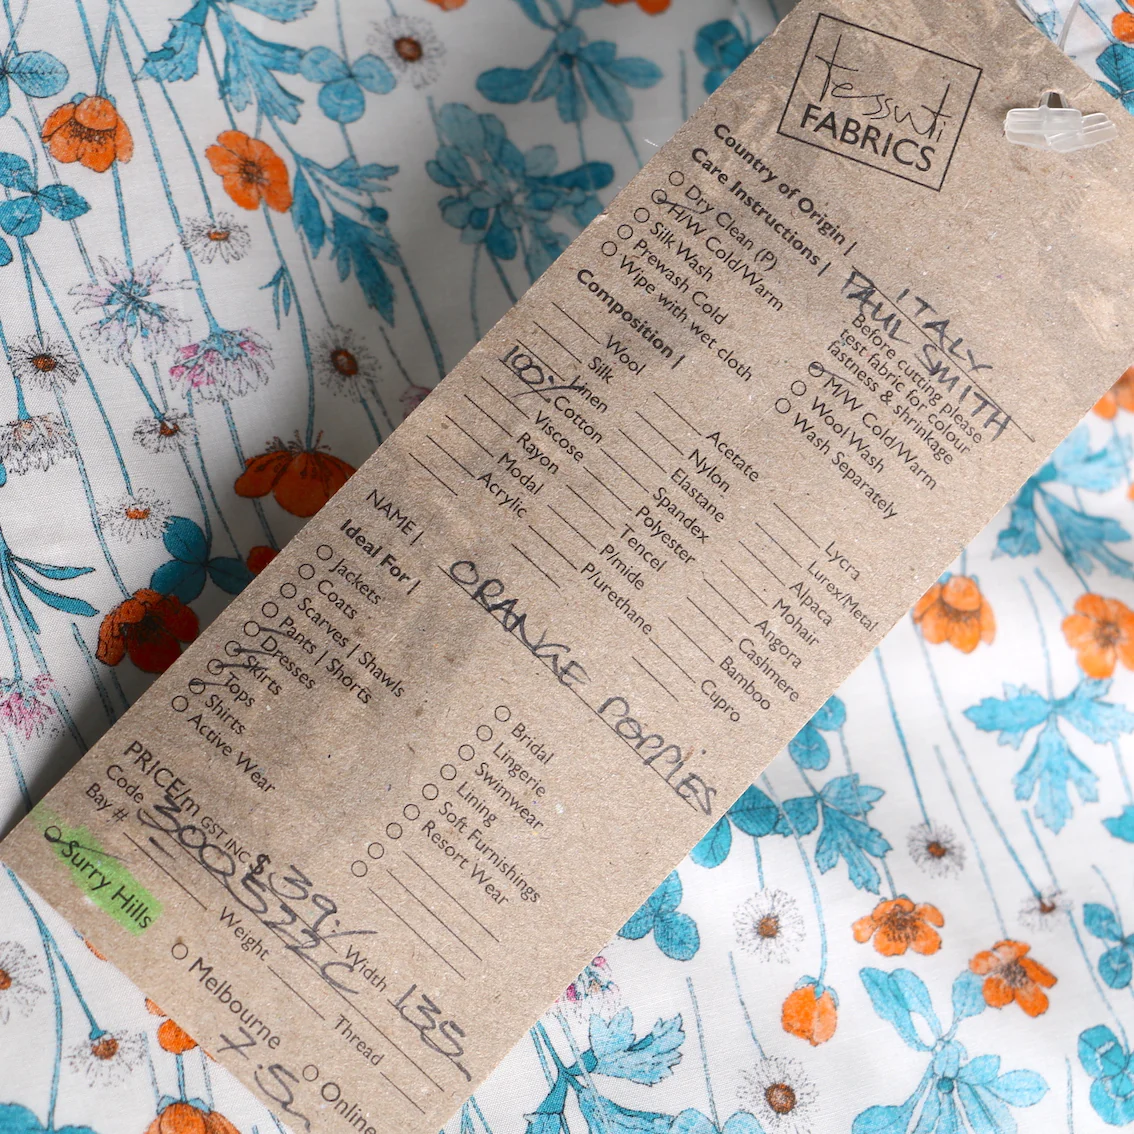 tessuti
FABRICS
Country of Origin | ITALY
Care Instructions | PAUL SMITH
Dry Clean (P)
H/W Cold/Warm
Silk Wash
Prewash Cold
Wipe with wet cloth
Before cutting please
test fabric for colour
fastness & shrinkage
M/W Cold/Warm
Wool Wash
Wash Separately
Composition |
Wool
Silk
Linen
100% Cotton
Viscose
Rayon
Modal
Acrylic
Acetate
Nylon
Elastane
Spandex
Polyester
Tencel
P/mide
P/urethane
Lycra
Lurex/Metal
Alpaca
Mohair
Angora
Cashmere
Bamboo
Cupro
NAME | ORANGE POPPIES
Ideal For |
Jackets
Coats
Scarves | Shawls
Pants | Shorts
Dresses
Skirts
Tops
Shirts
Active Wear
Bridal
Lingerie
Swimwear
Lining
Soft Furnishings
Resort Wear
PRICE/m GST INC $ 39.- Width 135
Code 300522C Thread
Bay # Weight
Surry Hills
Melbourne
Online
7.5m